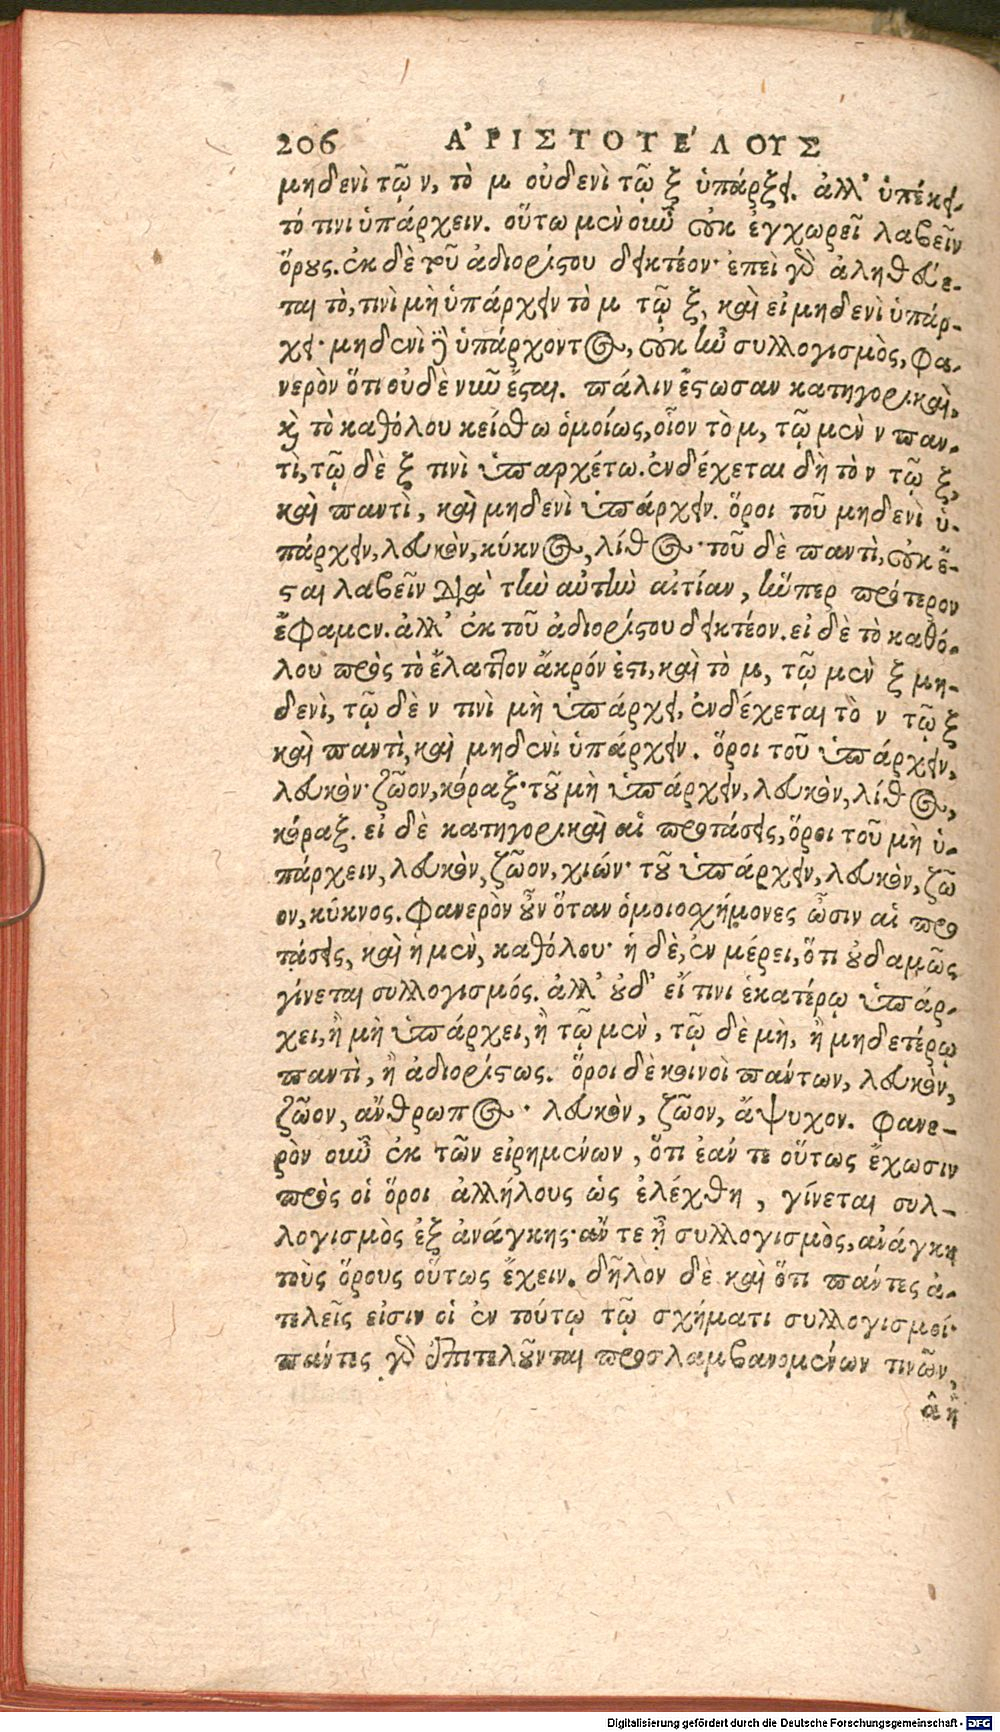 206 ἈΡΙΣΤΟΤΈΛΟΥΣ
μηδενὶ τῷ ν, τὸ μ οὐδενὶ τῷ ξ ὑπάρξει. ἀλλ’ ὑπέκει-
τό τινι ὑπάρχειν. οὕτω μὲν οὖν οὐκ ἐγχωρεῖ λαβεῖν
ὅρους. ἐκ δὲ τοῦ ἀδιορίστου δεικτέον· ἐπεὶ γὸ ἀληθεύε-
ται τὸ, τινὶ μὴ ὑπάρχειν τὸ μ τῷ ξ, καὶ εἰ μηδενὶ ὑπάρ-
χει· μηδενὶ ἢ ὑπάρχοντος, οὐκ ἦν συλλογισμὸς, φα-
νερὸν ὅτι οὐδὲ νῦν ἔσται. πάλιν ἔστωσαν κατηγορικαὶ,
κὶ τὸ καθόλου κείσθω ὁμοίως, οἷον τὸ μ, τῷ μὲν ν παν-
τὶ, τῷ δὲ ξ τινὶ ὑπαρχέτω. ἐνδέχεται δὴ τὸ ν τῷ ξ,
καὶ παντὶ, καὶ μηδενὶ ὑπάρχειν. ὅροι τοῦ μηδενὶ ὑ-
πάρχειν, λευκὸν, κύκνος, λίθος· τοῦ δὲ παντὶ, οὐκ ἔ-
σται λαβεῖν διὰ τὴν αὐτὴν αἰτίαν, ἥνπερ πρότερον
ἔφαμεν. ἀλλ’ ἐκ τοῦ ἀδιορίστου δεικτέον. εἰ δὲ τὸ καθό-
λου πρὸς τὸ ἔλαττον ἄκρόν ἐστι, καὶ τὸ μ, τῷ μὲν ξ μη-
δενὶ, τῷ δὲ ν τινὶ μὴ ὑπάρχει, ἐνδέχεται τὸ ν τῷ ξ
καὶ παντὶ, καὶ μηδενὶ ὑπάρχειν. ὅροι τοῦ ὑπάρχειν,
λευκὸν· ζῶον, κόραξ· τοῦ μὴ ὑπάρχειν, λευκὸν, λίθος,
κόραξ. εἰ δὲ κατηγορικαὶ αἱ προτάσεις, ὅροι τοῦ μὴ ὑ-
πάρχειν, λευκὸν, ζῶον, χιών· τοῦ ὑπάρχειν, λευκὸν, ζῶ
ον, κύκνος. φανερὸν οὖν ὅταν ὁμοιοσχήμονες ὦσιν αἱ προ
τάσεις, καὶ ἡ μὲν, καθόλου· ἡ δὲ, ἐν μέρει, ὅτι οὐδαμῶς
γίνεται συλλογισμός. ἀλλ’ οὐδ’ εἴ τινι ἑκατέρῳ ὑπάρ-
χει, ἢ μὴ ὑπάρχει, ἢ τῷ μὲν, τῷ δὲ μὴ, ἢ μηδετέρῳ
παντὶ, ἢ ἀδιορίστως. ὅροι δὲ κοινοὶ πάντων, λευκὸν,
ζῶον, ἄνθρωπος· λευκὸν, ζῶον, ἄψυχον. φανε-
ρὸν οὖν ἐκ τῶν εἰρημένων, ὅτι ἐάν τε οὕτως ἔχωσιν
πρὸς οἱ ὅροι ἀλλήλους ὡς ἐλέχθη, γίνεται συλ-
λογισμὸς ἐξ ἀνάγκης· ἄν τε ᾖ συλλογισμὸς, ἀνάγκη
τοὺς ὅρους οὕτως ἔχειν. δῆλον δὲ καὶ ὅτι πάντες ἀ-
τελεῖς εἰσιν οἱ ἐν τούτῳ τῷ σχήματι συλλογισμοί·
πάντες γὸ ἐπιτελοῦνται προσλαμβανομένων τινῶν,
ἃ ἢ
Digitalisierung gefördert durch die Deutsche Forschungsgemeinschaft - DFG